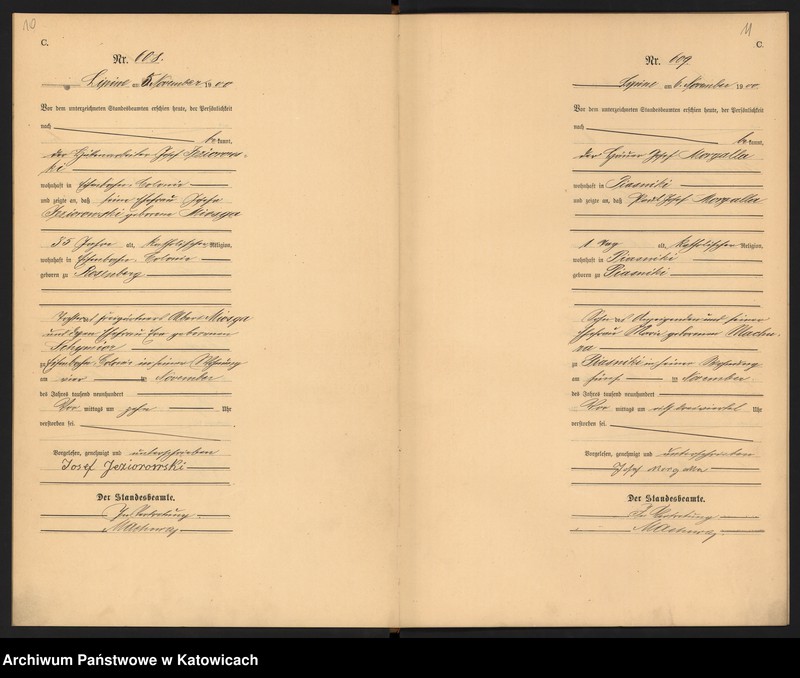 10
C.
Nr. 608.
Lipine am 5. November 1900
Vor dem unterzeichneten Standesbeamten erschien heute, der Persönlichkeit
nach
bekannt,
der Hüttenarbeiter Josef Jeziorows-
ki
wohnhaft in Colonie
und zeigte an, daß seine Ehefrau Josefa
Jeziorowski geborene Miosga
55 Jahre alt, katholischer Religion,
wohnhaft in Colonie
geboren zu Rossberg
Tochter Miosga
und dessen Ehefrau Eva geborenen
zu Colonie in seiner Wohnung
am vier ten November
des Jahres tausend neunhundert
Vor mittags um zehn Uhr
verstorben sei.
Vorgelesen, genehmigt und unterschrieben
Josef Jeziorowski
Der Standesbeamte.
In Vertretung
11
C.
Nr. 609.
Lipine am 6. November 1900
Vor dem unterzeichneten Standesbeamten erschien heute, der Persönlichkeit
nach
bekannt,
der Häuer Josef Morgalla
wohnhaft in Piasniki
und zeigte an, daß Paul Josef Morgalla
1 Tag alt, katholischer Religion,
wohnhaft in Piasniki
geboren zu Piasniki
Sohn des Anzeigenden und seiner
Ehefrau Maria geborenen Machu-
ra
zu Piasniki in seiner Wohnung
am fünf ten November
des Jahres tausend neunhundert
Vor mittags um elf dreiviertel Uhr
verstorben sei.
Vorgelesen, genehmigt und unterschrieben
Josef Morgalla
Der Standesbeamte.
In Vertretung
Archiwum Państwowe w Katowicach